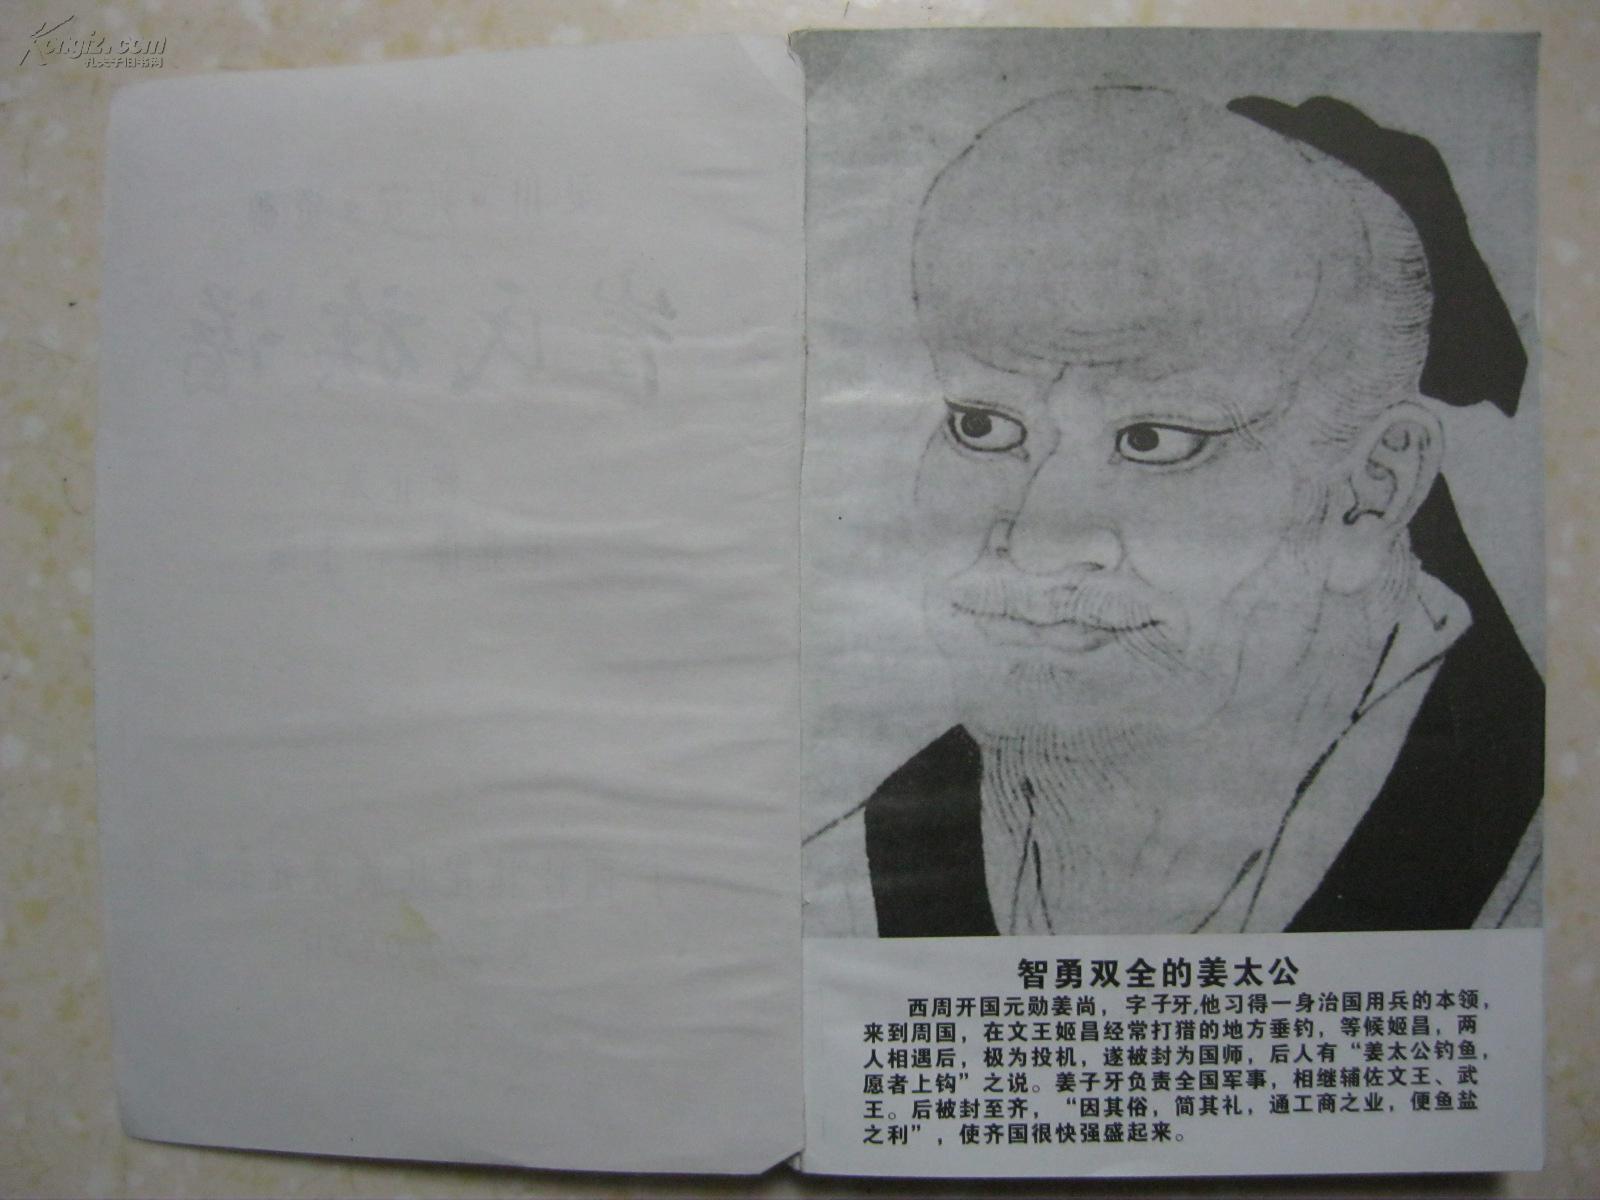 Kongfz.com
孔夫子旧书网
智勇双全的姜太公
西周开国元勋姜尚，字子牙,他习得一身治国用兵的本领，
来到周国，在文王姬昌经常打猎的地方垂钓，等候姬昌，两
人相遇后，极为投机，遂被封为国师，后人有“姜太公钓鱼，
愿者上钩”之说。姜子牙负责全国军事，相继辅佐文王、武
王。后被封至齐，“因其俗，简其礼，通工商之业，便鱼盐
之利”，使齐国很快强盛起来。